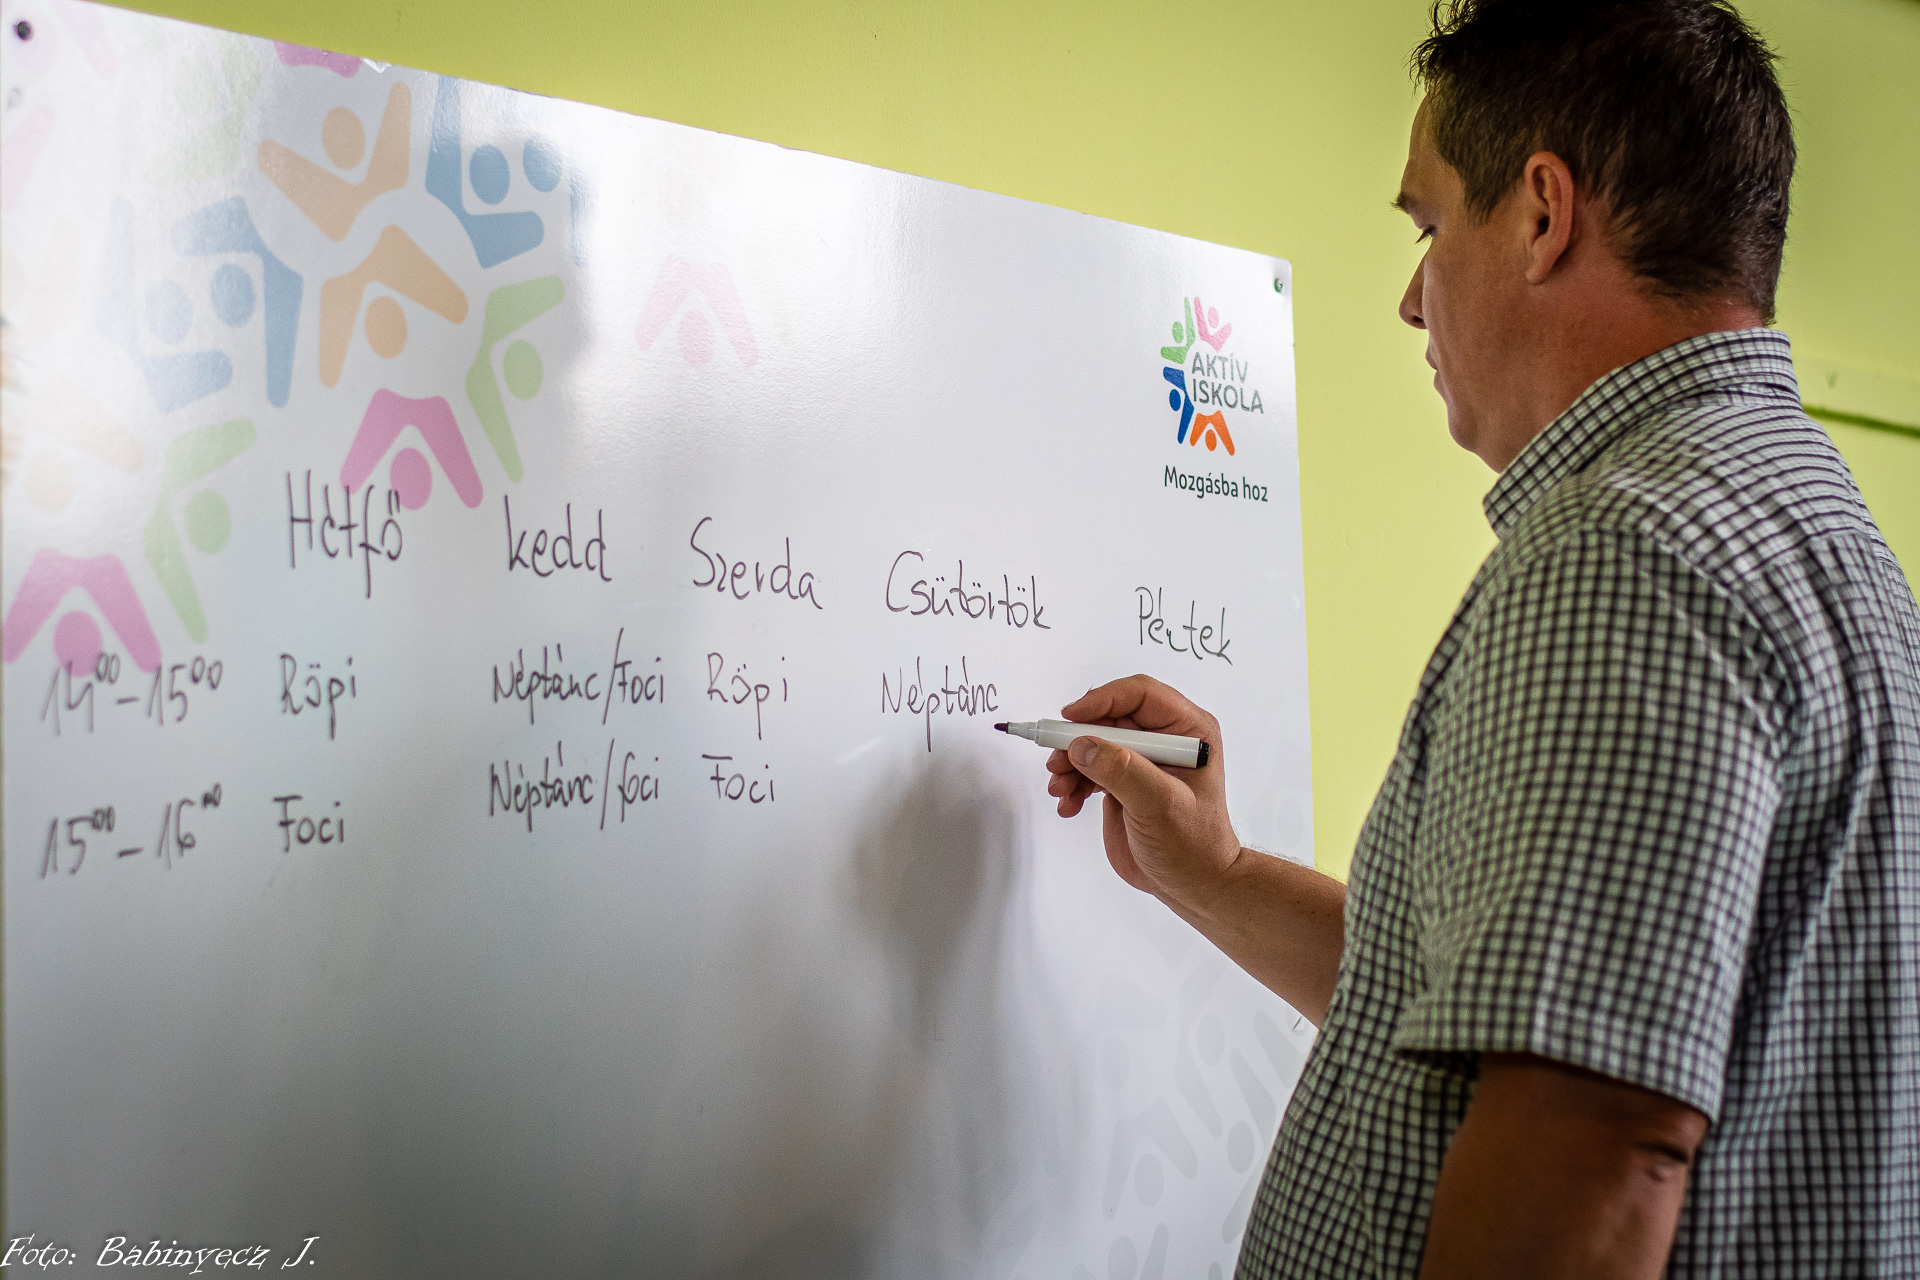 AKTÍV
ISKOLA
Mozgásba hoz
Hétfő kedd Szerda Csütörtök Péntek
14⁰⁰-15⁰⁰ Röpi Néptánc/Foci Röpi Néptánc
15⁰⁰-16⁰⁰ Foci Néptánc/foci Foci
Foto: Babinyecz J.